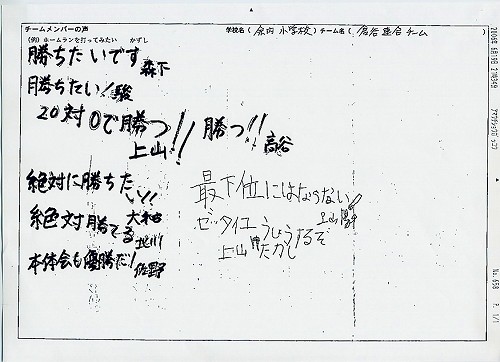 チームメンバーの声
学校名( 小学校)チーム名( 倉谷連合チーム )
(例)ホームランを打ってみたい かずし
勝ちたいです 森下
勝ちたい! 駿
20対0で勝つ!! 上山
勝つ!! 高谷
絶対に勝ちたい!!
絶対勝てる 北川
本体会も優勝だ! 佐野
最下位にはならない! 上山
ゼッタイユうしょうするぞ
上山 たかし
No.658 P. 1/1